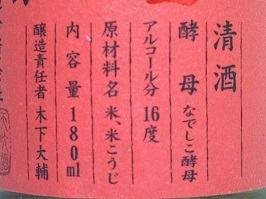 清酒
酵母 なでしこ酵母
アルコール分 16度
原材料名 米、米こうじ
内容量 180ml
醸造責任者 木下大輔